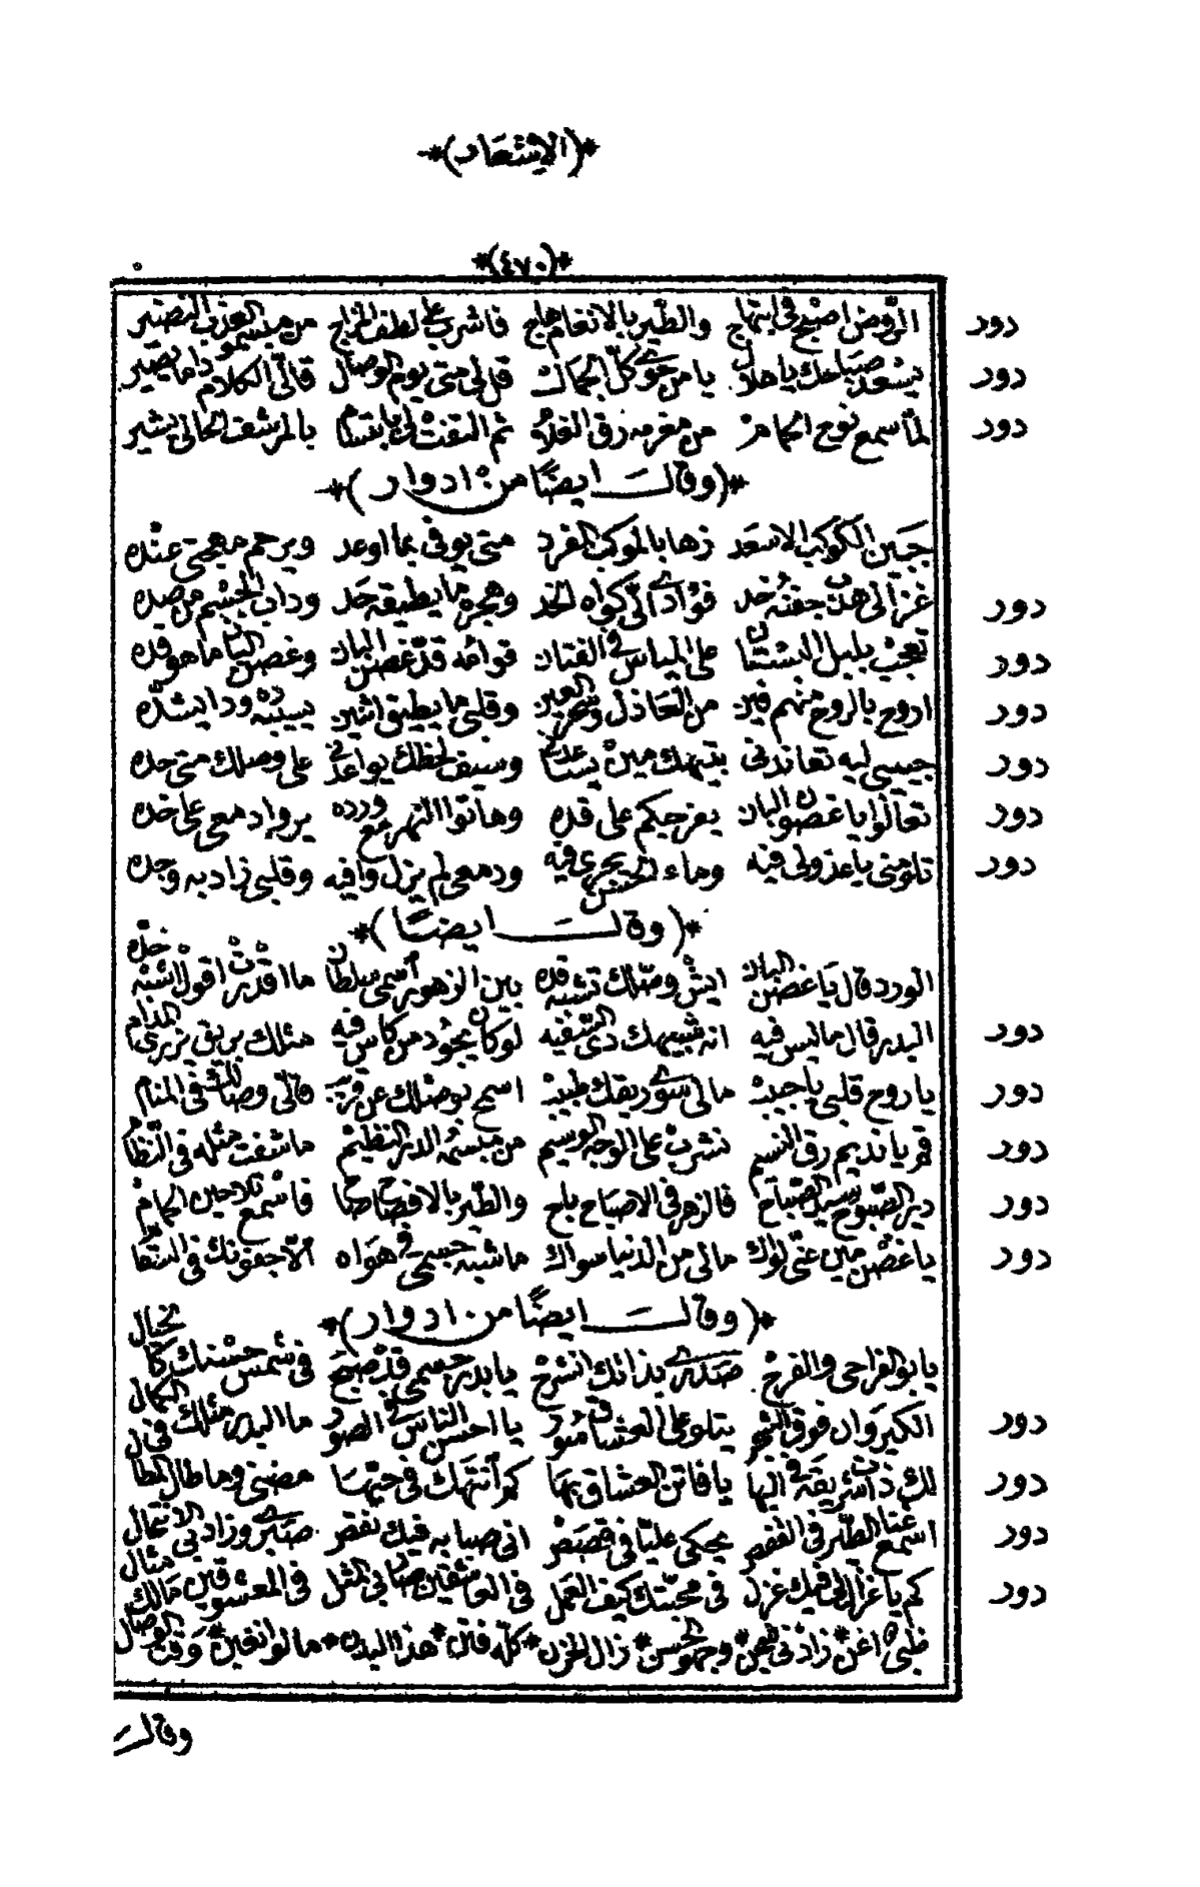 *(الاشعار)*
*(٤٧٠)*
دور الروض اصبح فى ابتهاج والطير بالانغام هاج فاشرب على لطف المزاج من مبسمو العذب النضير
دور يسعد صباحك يا هلال يا من حوى كل الجمال قل لى متى يوم الوصال قالى الكلام دا ما يصير
دور لما سمع نوح الحمام من مغرمه رق الغلام ثم التفت لى بابتسام بالمرشف الحالى يشير
*(وقال ايضا من ادوار)*
جبين الكوكب الاسعد زها بالموكب المفرد متى يوفى بما اوعد ويرحم مهجتى عنده
دور غزالى هدب جفنه خد فؤادى الى كواه الخد وهجره ما يطيقه حد وداب الجسم من صده
دور تعجب بلبل البستان على المياس فى الفتان قوامه قد غصن البان وغصن البان ما هو قده
دور اروح بالروح منهم فين من العاذل وسحر العين وقلبى ما يطيق اثنين يسيبه ده ودا يشده
دور حبيبى ليه تعاندنى بتيهك مين يساعدنى وسيف لحظك يواعدنى على وصلك متى حده
دور تعالوا يا غصون البان يفرجكم على قده وهاتوا الزهر مع ورده يروا دمعى على خده
دور تلومنى يا عذولى فيه وماء الحسن يجرى فيه ودمعى لم يزل وافيه وقلبى زاد به وجده
*(وقال ايضا)*
الورد قال يا غصن البان ايش وصلك تشبه قده بين الزهور اسمى سلطان ما اقدرت اقول اشبه خده
دور البدر قال ما ليس فيه انه شبيهك دى السفيه لو كان يجود من كاس فيه مثلك بريق يزرى المدام
دور يا روح قلبى يا حبيب مالى سوى ريقك طبيب اسمح بوصلك عن قريب قالى وصالك فى المنام
دور قم يا نديم رق النسيم نشرب على الوجه الوسيم من مبسمه الدر النظيم ما شفت مثله فى النظام
دور دير الصبوح سيد الصباح فالزهر فى الاصباح بلح والطير بالافصاح صاح فاسمع تلاحين الحمام
دور يا غصن مين عنى لواك مالى من الدنيا سواك ما شبه جسمى فى هواه الا جفونك فى السقام
*(وقال ايضا من ادوار)*
يا بو الفراحى والفرح صدرى بذاتك انشرح يا بدر جسمى قد صبح فى شمس حسنك كالخيال
دور الكيروان فوق الشجر يتلو على العشاق سور يا احسن الناس فى الصور ما البدر مثلك فى الكمال
دور لك ذات شريفة فى البها يا فاتن العشاق بها كم أنتهك فى حبها مضنى وما طال المطال
دور اسمع غنا الطير فى القفص يحكى علينا فى قصص انى صبابه فيك نقص صبرى وزاد بى الانتحال
دور كم يا غزالى فيك غزل فى محبتك كيف العمل فى العاشقين صابى المثل فى المعشوقين مالك مثال
ظبى اغن * زادنى شجن * وجهو الحسن * زال الحزن * كله فتن * هذا البدن * مالو انغبن * وقت الوصال
وقال